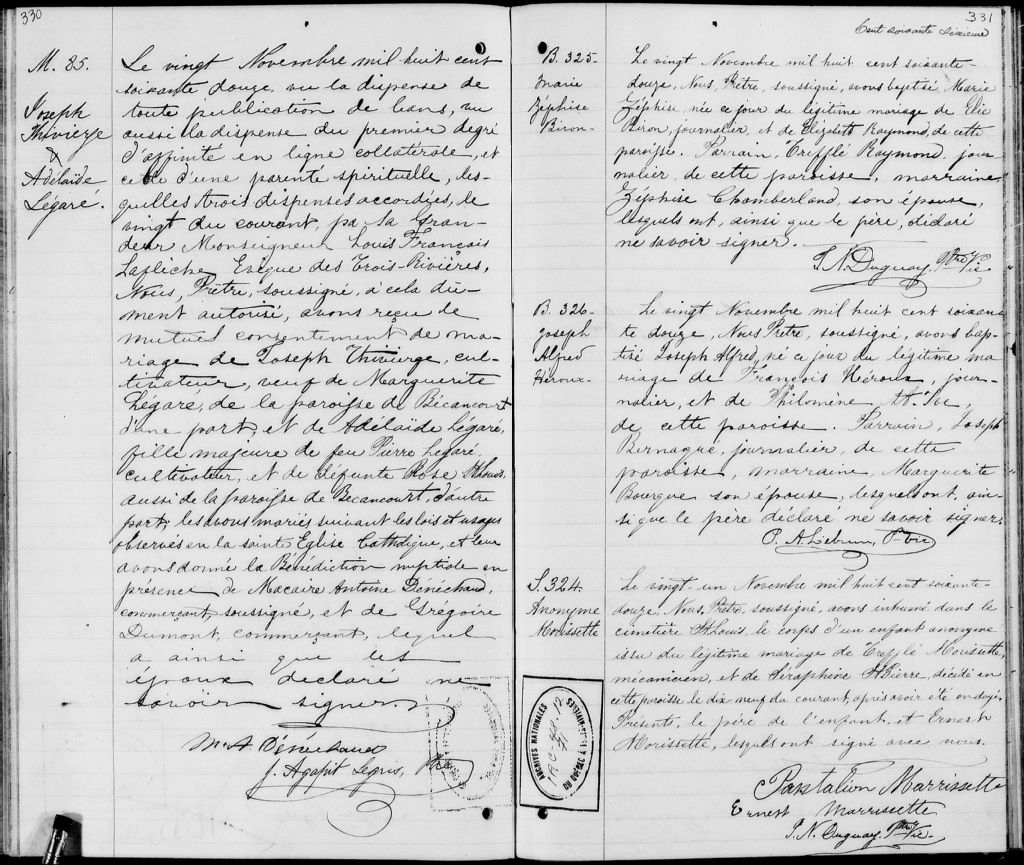 330
M. 85.
Joseph
Thivierge
&
Adélaïde
Légaré.
Le vingt Novembre mil huit cent
soixante douze, vu la dispense de
toute publication de bans, vu
aussi la dispense du premier degré
d'affinité en ligne collatérale, et
celle d'une parenté spirituelle, les-
quelles trois dispenses accordées, le
vingt du courant, par Sa Gran-
deur Monseigneur Louis François
Laflèche, Evêque des Trois-Rivières,
Nous, Prêtre, soussigné, à cela dû-
ment autorisé, avons reçu le
mutuel consentement de ma-
riage de Joseph Thivierge, cul-
tivateur, veuf de Marguerite
Légaré, de la paroisse de Bécancourt
d'une part, et de Adélaïde Légaré,
fille majeure de feu Pierre Légaré,
cultivateur, et de défunte Rose St Louis,
aussi de la paroisse de Bécancourt, d'autre
part, les avons mariés suivant les lois et usages
observés en la sainte Eglise Catholique, et leur
avons donné la Bénédiction nuptiale en
présence de Macaire Antoine Dénéchaud,
commerçant, soussigné, et de Grégoire
Dumont, commerçant, lequel
a ainsi que les
époux déclaré ne
savoir signer.
M A Dénéchaud
J. Agapit Ptre
331
Cent soixante sixième
B. 325-
Marie
Zéphise
Biron-
Le vingt Novembre mil huit cent soixante-
douze, Nous, Prêtre, soussigné, avons baptisé Marie
Zéphise née ce jour du légitime mariage de Elie
Biron, journalier, et de Elizabeth Raymond, de cette
paroisse. Parrain, Trefflé Raymond, jour-
nalier, de cette paroisse, marraine,
Zéphise Chamberland, son épouse,
lesquels ont, ainsi que le père, déclaré
ne savoir signer.
S. N. Duguay, Ptre Vic
B. 326-
Joseph
Alfred
Héroux-
Le vingt Novembre mil huit cent soixan-
te douze, Nous Prêtre, soussigné, avons bap-
tisé Joseph Alfred, né ce jour du légitime ma
riage de François Héroux, jour-
nalier, et de Philomène
de cette paroisse. Parrain, Joseph
Bernagré, journalier, de cette
paroisse, marraine Marguerite
Bourque son épouse, lesquels ont, ain-
si que le père déclaré ne savoir signer.
P. A. Lebrun, Ptre
S. 324.
Anonyme
Morissette
Le vingt-un Novembre mil huit cent soixante-
douze, Nous, Prêtre, soussigné, avons inhumé dans le
cimetière St Louis, le corps d'un enfant anonyme
issu du légitime mariage de Trefflé Morissette,
mécanicien, et de Séraphine St Pierre, décédé en
cette paroisse le dix neuf du courant, après avoir été ondoyé.
Présents le père de l'enfant et Ernest
Morissette, lesquels ont signé avec nous.
Pantalion Marrissette
Ernest Marrissette
S. N. Duguay, Ptre Vic-
ARCHIVES NATIONALES
DU QUÉBEC À TROIS-RIVIÈRES